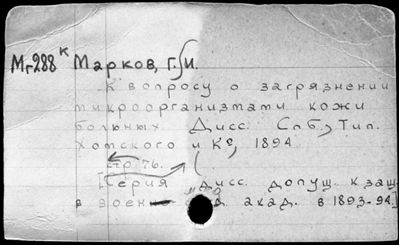 Мг288 к Марков, Г. И.
К вопросу о загрязнении
микроорганизмами кожи
больных. Дисс. Спб., Тип.
Хомского и К°, 1894.
стр. 76.
[Серия дисс. допущ. к защ.
в воен- акад. в 1893-94]